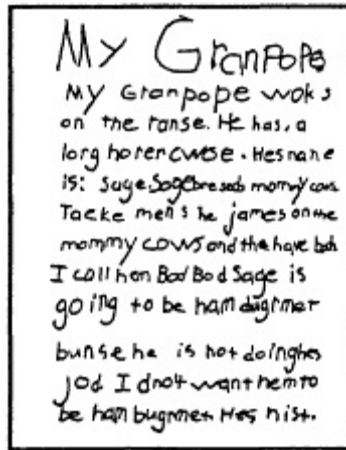 My Granpope
My Granpope woks
on the ranse. He has, a
lorg horercwese. Hes name
is: sage. Sage bre seds mommy cows.
Taeke men's he james on the
mommy cows and the have bah
I call hem Bad Bod Sage is
going to be ham dugrmer
bunse he is not doing hes
jod I dno4 want hem to
be ham bugrmer. Hes nist.